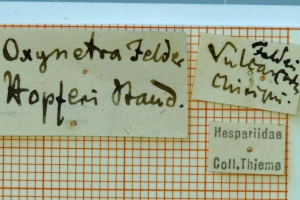 Oxynetra Felder
Hopferi Staud.
Felder
Vulcan
Chiriqui.
Hesperiidae
Coll. Thieme